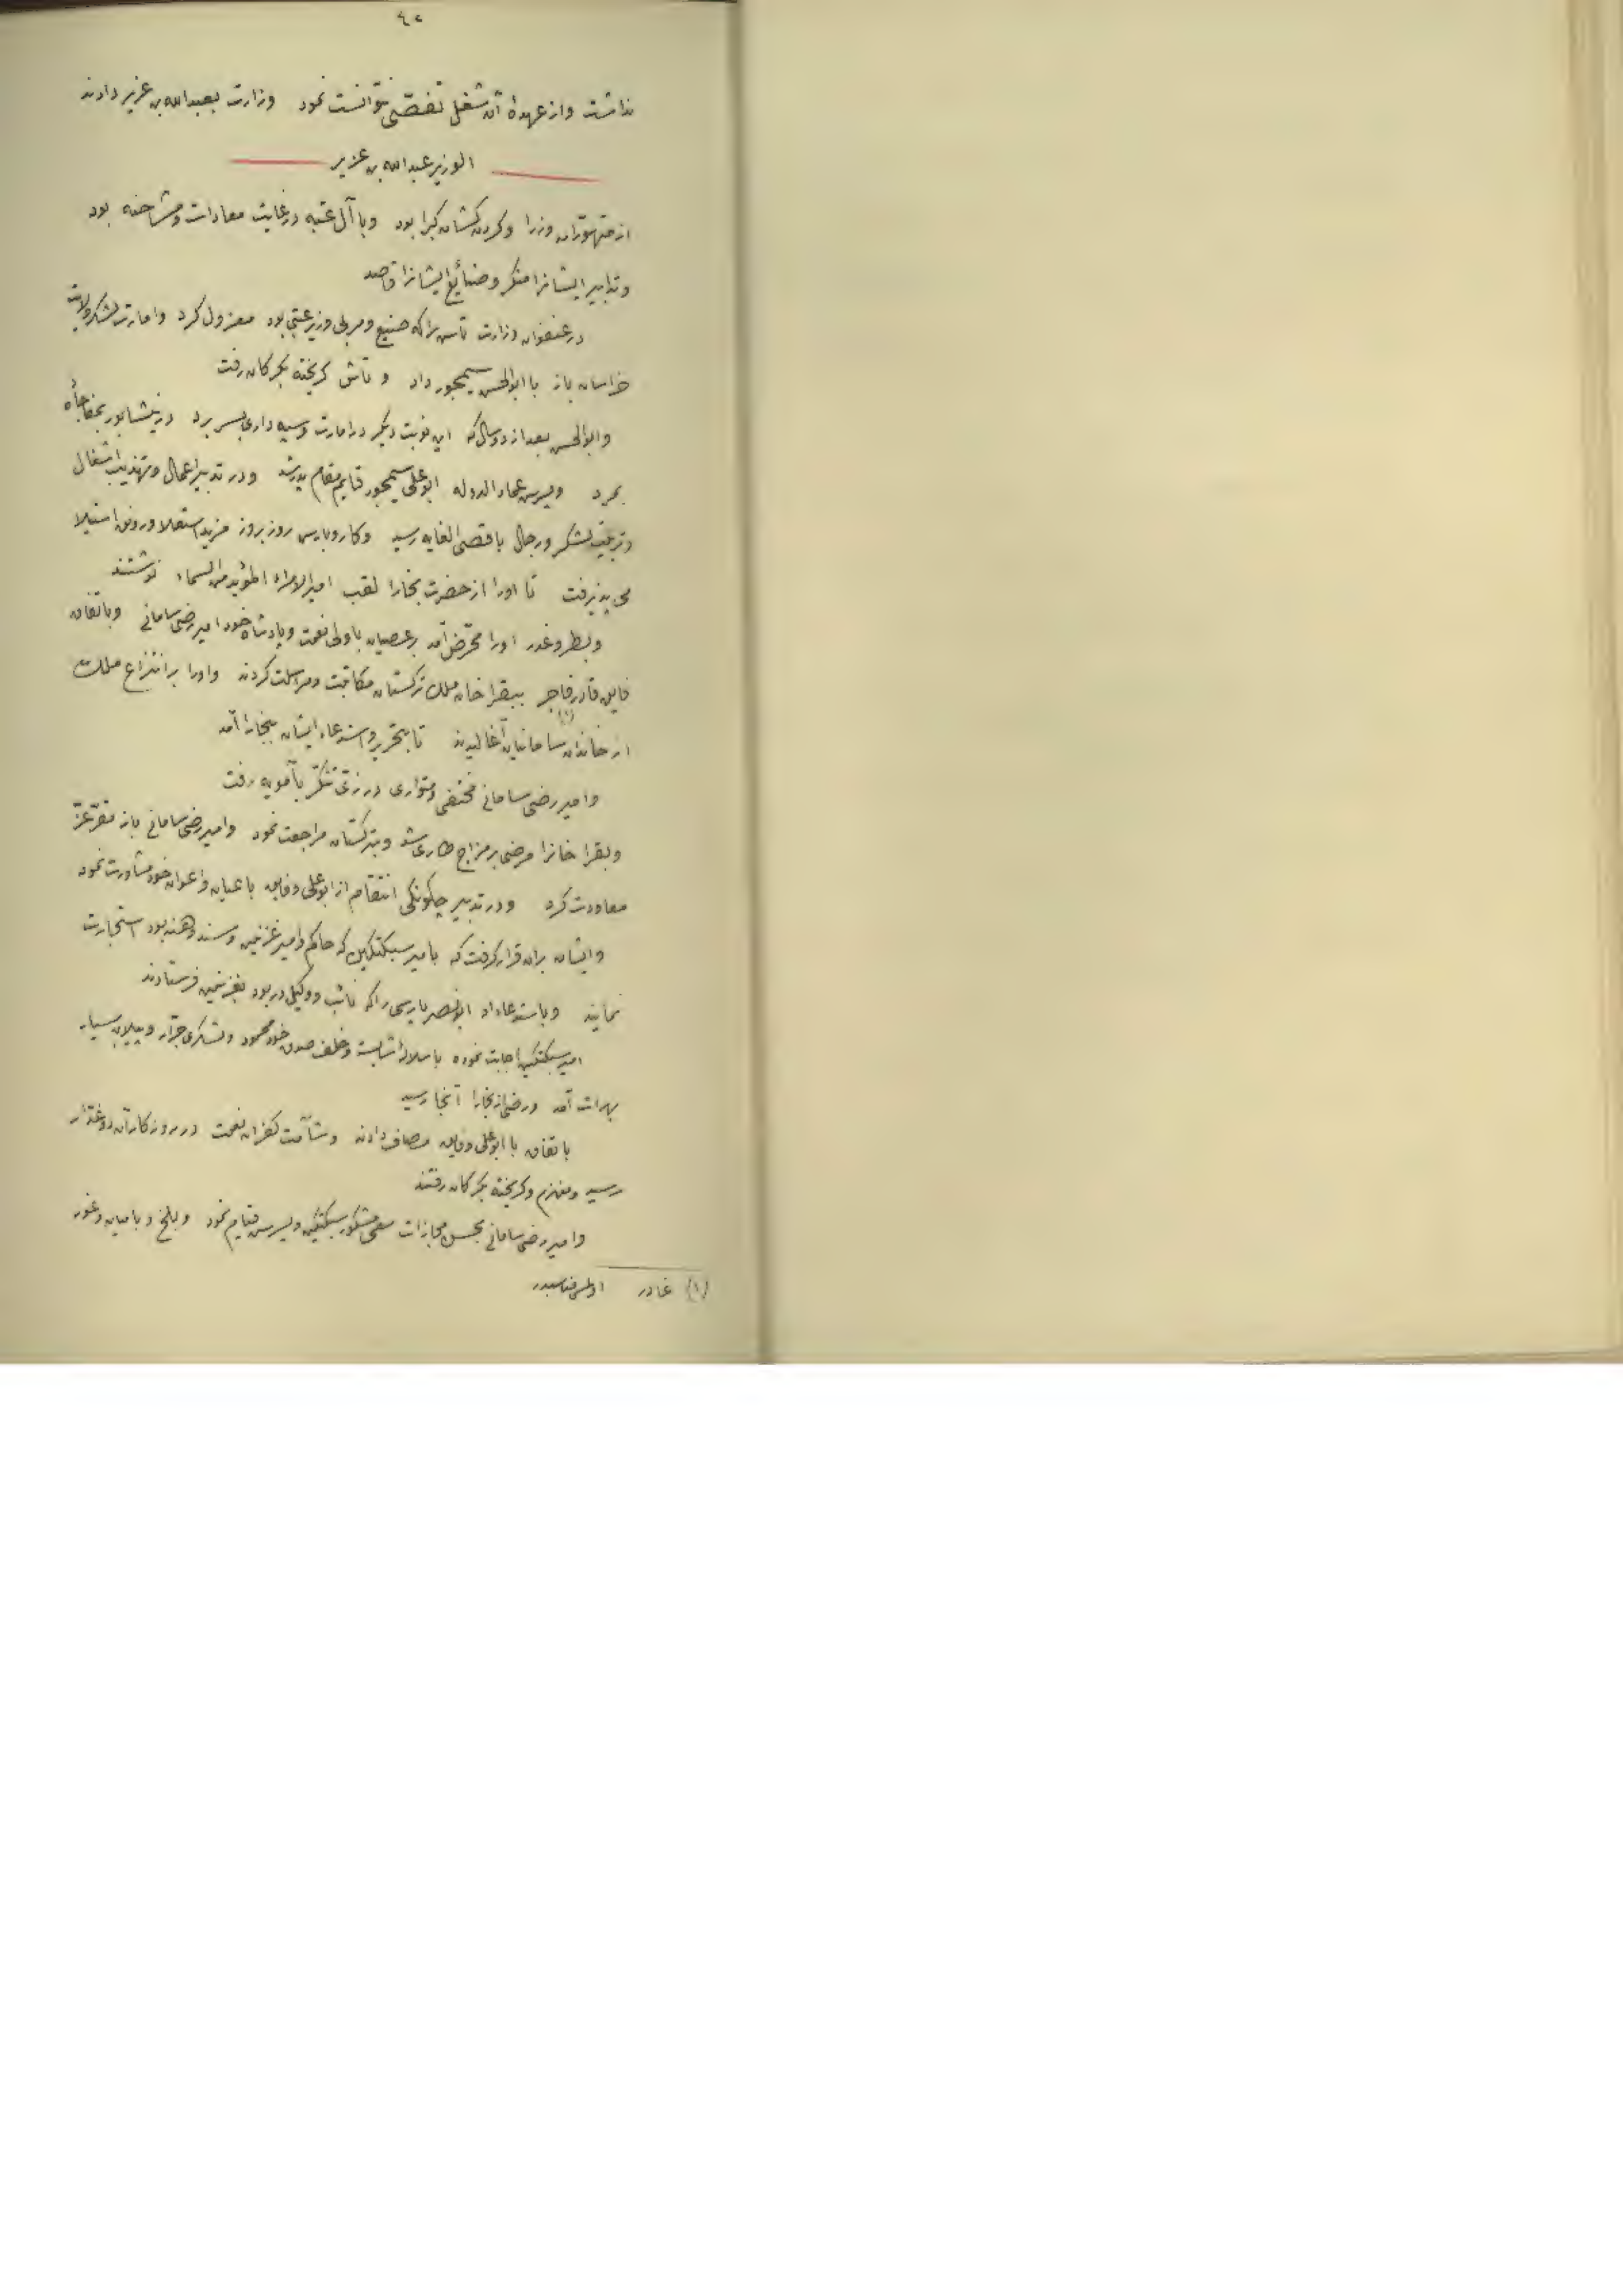 ٤٢
نداشت واز عهدهٔ آن شغل تفصّی نتوانست نمود وزارت بعبدالله بن عزیر دادند
الوزیر عبدالله بن عزیر
از متهوّران وزرا وکردن کشان کبرا بود وبا آل عتبه در غایت معادات ومشاحنه بود
وتدابیر ایشانرا منکر وصنائع ایشانرا قاصد
در عنفوان وزارت تاش را که صنیع ومربی وزیر عتبی بود معزول کرد وامارت لشکر وولایت
خراسان باز با ابوالحسن سیمجور داد و تاش کریخته بکرکان رفت
وابوالحسن بعد از دو سال که این نوبت دیکر در امارت وسپه داری بسر برد در نیشابور بمفاجأه
بمرد وپسرش عماد الدوله ابو علی سیمجور قایم مقام پدر شد ودر تدبیر اعمال وتهذیب اشغال
وتربیت لشکر ورجال باقصی الغایه رسید وکار وبارش روز بروز مزید استعلا ورونق استیلا
می پذیرفت تا اورا از حضرت بخارا لقب امیر الامراء المؤید من السماء نوشتند
وبطر وغدر اورا محرّض آمد بر عصیان با ولی نعمت وپادشاه خود امیر رضی سامانی وباتفاق
فایق قادر فاجر ببقرا خان ملک ترکستان مکاتبت ومراسلت کردند واورا بر انتزاع ملک
(١)
از خاندان سامانیان آغالیدند تا بتحریر واستدعاء ایشان ببخارا آمد
وامیر رضی سامانی مختفی ومتواری در زیّ تنکّر بآمویه رفت
وبقرا خانرا مرضی بر مزاج طاری شد وبترکستان مراجعت نمود وامیر رضی سامانی باز مقرّ عزّ
معاودت کرد ودر تدبیر چکونکی انتقام از ابو علی وفایق با عیان واعوان خود مشاورت نمود
وایشان بران قرار کرفت که با میر سبکتکین که حاکم وامیر غزنین وسند وهند بود استجارت
نمایند وباستدعاء او ابو نصر پارسی را که نائب ووکیل در بود بغزنین فرستادند
امیر سبکتکین اجابت نموده با سلالهٔ شایسته وخلف صدق خود محمود ولشکری جرّار وپیلان بسیار
بهرات آمد ورضی از بخارا آنجا رسید
باتفاق با ابو علی وفایق مصاف دادند وشآمت کفران نعمت در روزکار آن دو غدّار
رسید ومنهزم وکریخته بکرکان رفتند
وامیر رضی سامانی بحسن مجازات سعی مشکور سبکتکین وپسرش قیام نمود وبلخ وبامیان وغور
(١) غادر اولمسی مناسبدر